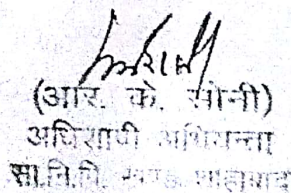 (आर. के. सोनी)
अधिशाषी अभियन्ता
सा.नि.वि. खण्ड